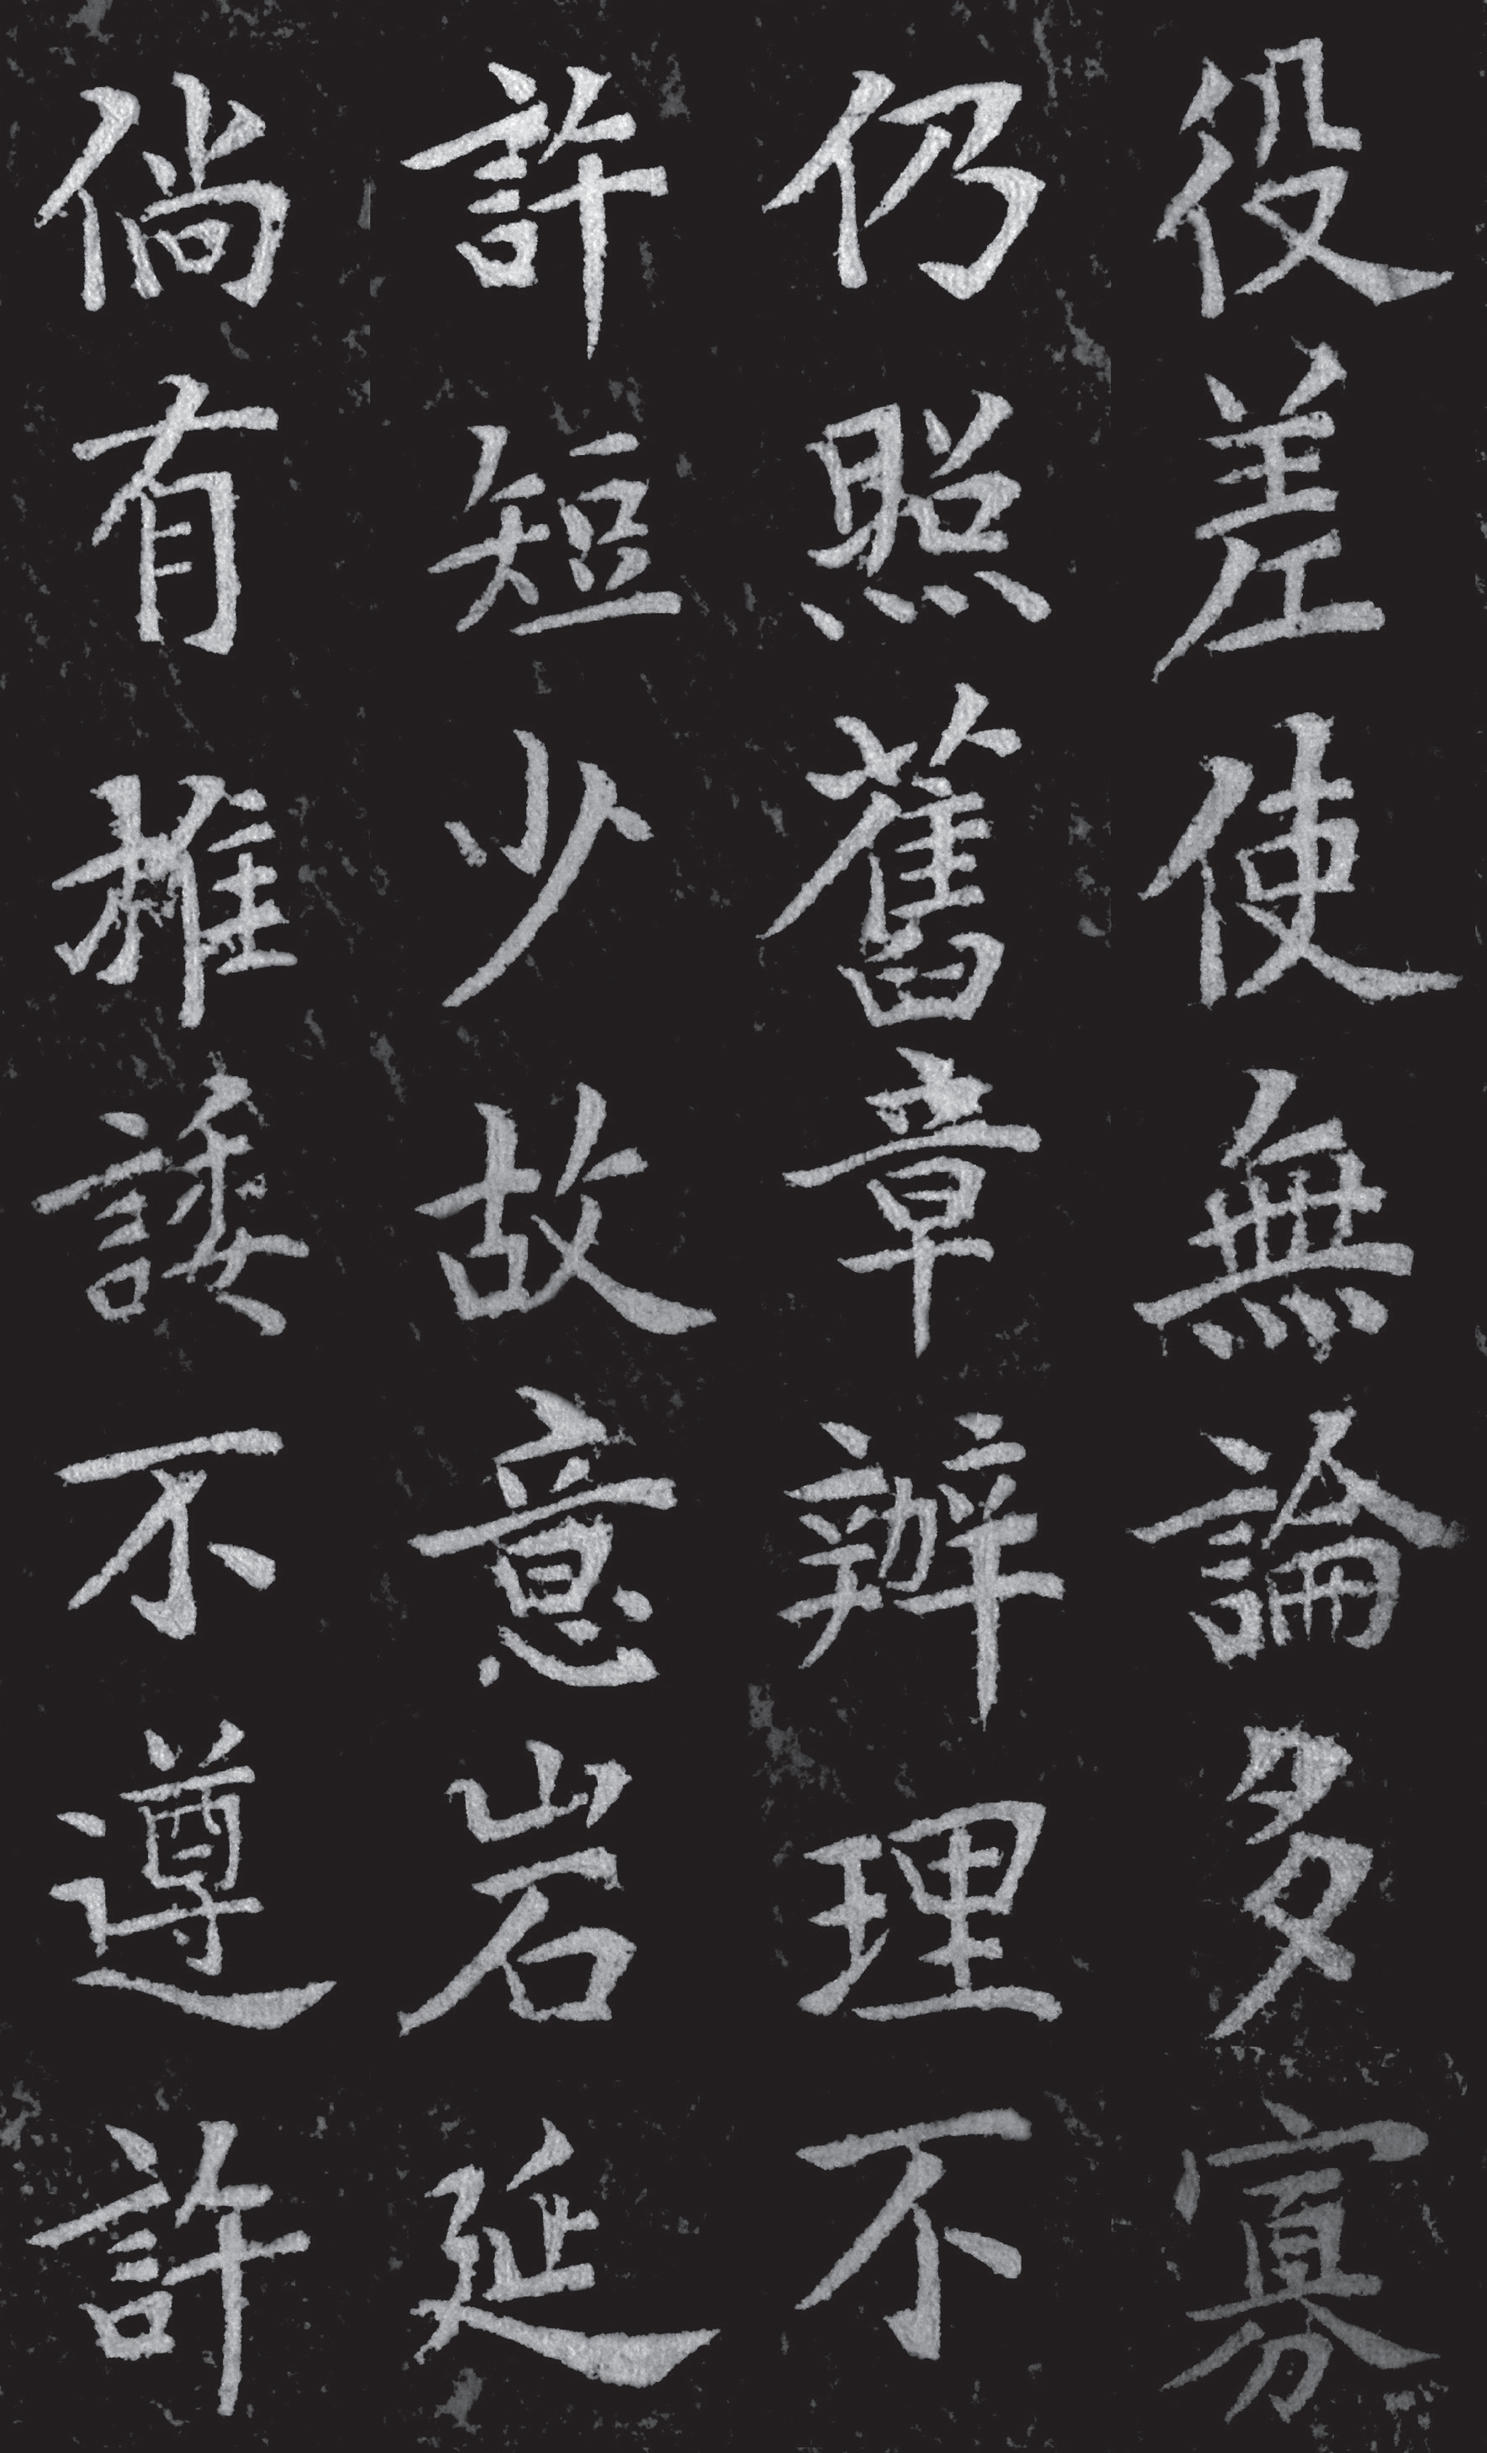 役差使無論多寡
仍照舊章辦理不
許短少故意岩延
倘有推諉不遵許